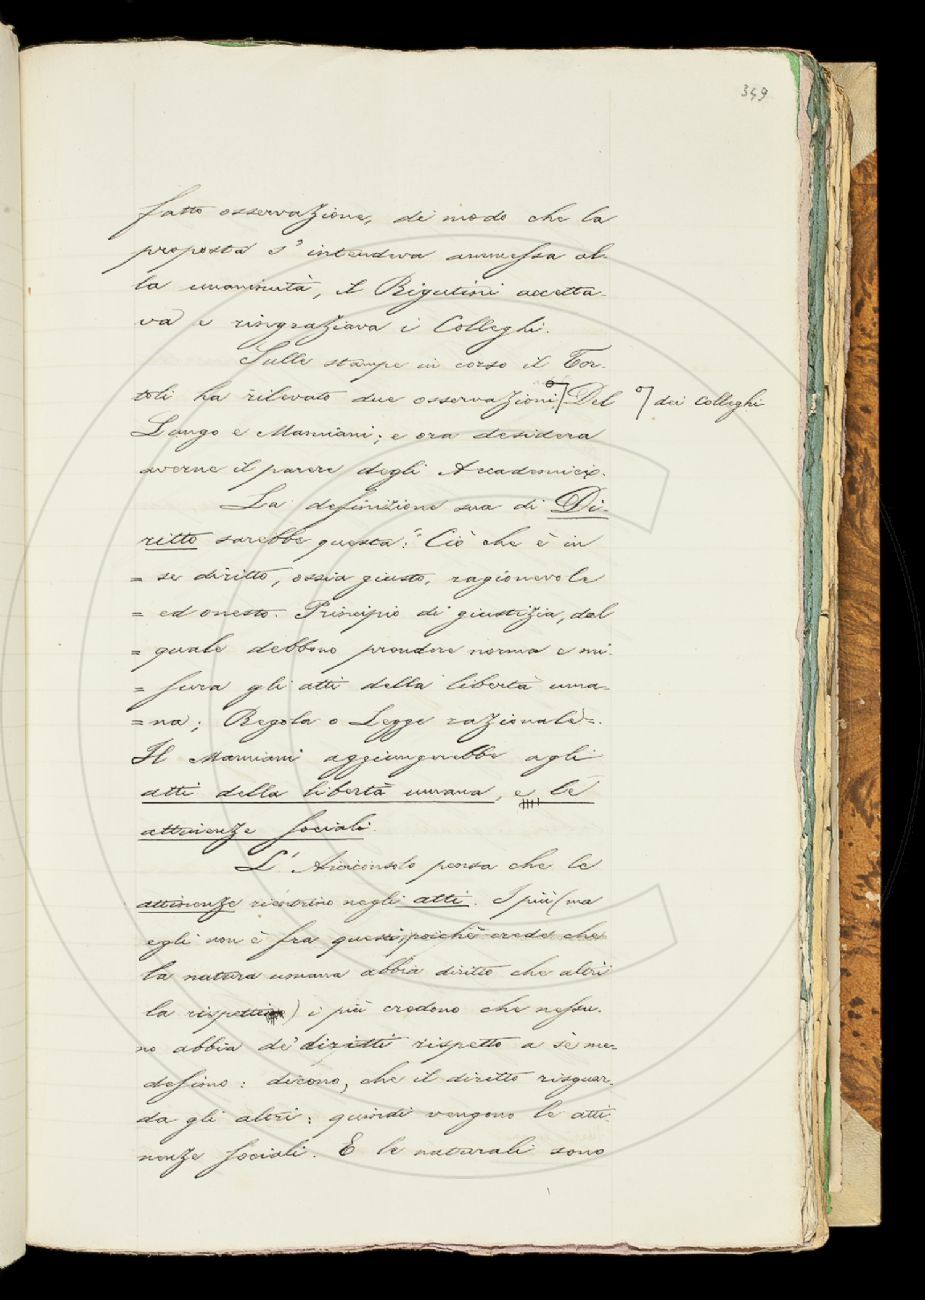 349
fatto osservazione, di modo che la
proposta s'intendeva ammessa al-
la unanimità, il Rigutini accetta-
va e ringraziava i Colleghi.
Sulle stampe in corso il Tor-
toli ha rilevato due osservazioni Del
dei Colleghi
Lungo e Mamiani; e ora desidera
averne il parere degli Accademici.
La definizione sua di Di-
ritto sarebbe questa: "Ciò che è in
= se diritto, ossia giusto, ragionevole
= ed onesto. Principio di giustizia, dal
= quale debbono prendere norma e mi-
= sura gli atti della libertà uma-
= na; Regola o Legge razionale =.
Il Mamiani aggiungerebbe agli
atti della libertà umana, e le
attinenze sociali.
L'Arciconsolo pensa che le
attinenze rientrino negli atti. I più (ma
egli non è fra questi, poichè crede che
la natura umana abbia diritto che altri
la rispetti) i più credono che nessu-
no abbia de' diritti rispetto a sè me-
desimo: dicono, che il diritto risguar-
da gli altri: quindi vengono le atti-
nenze sociali. E le naturali sono